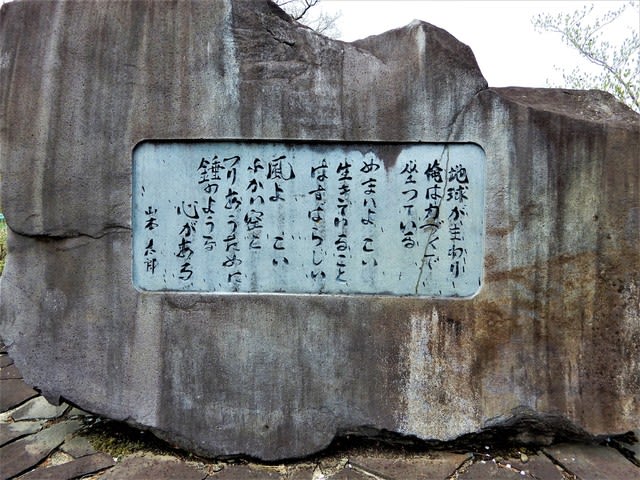 地球がまわり
俺は力づくで
坐っている
めまいよ こい
生きていること
はすばらしい
風よ こい
ふかい空と
つりあうために
錘のような
心がある
山本太郎